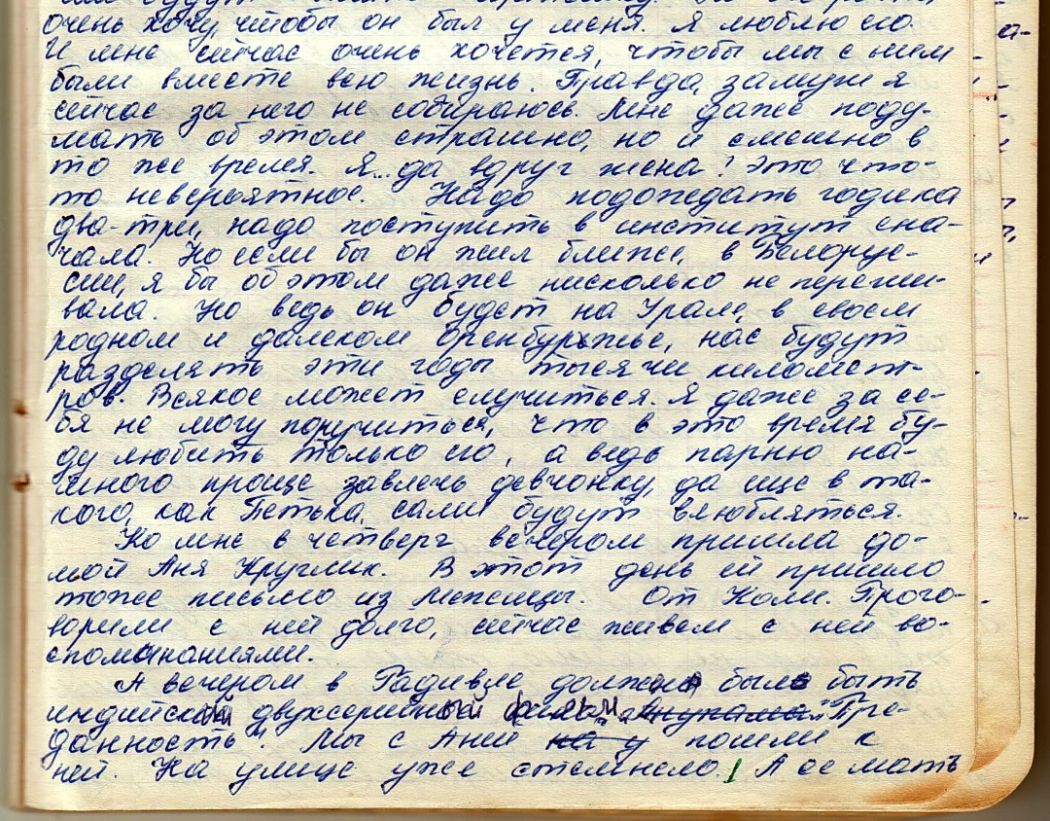 очень хочу, чтобы он был у меня. Я люблю его.
И мне сейчас очень хочется, чтобы мы с ним
были вместе всю жизнь. Правда, замуж я
сейчас за него не собираюсь. Мне даже поду-
мать об этом страшно, но и смешно в
то же время. Я... да вдруг жена! Это что-
то невероятное. Надо подождать годика
два-три, надо поступить в институт сна-
чала. Но если бы он жил ближе, в Белорус-
сии, я бы об этом даже нисколько не пережи-
вала. Но ведь он будет на Урале, в своем
родном и далеком Оренбуржье, нас будут
разделять эти годы тысячи километ-
ров. Всякое может случиться. Я даже за се-
бя не могу поручиться, что в это время бу-
ду любить только его, а ведь парню на-
много проще завлечь девчонку, да еще в та-
кого, как Петька, сами будут влюбляться.
Ко мне в четверг вечером пришла до-
мой Аня Круглик. В этот день ей пришло
тоже письмо из Мексицы. От Коли. Прого-
ворили с ней долго, сейчас живем с ней во-
споминаниями.
А вечером в должен был быть
индийский двухсерийный фильм "Пре-
данность". Мы с Аней на у пошли к
ней. На улице уже стемнело. А ее мать